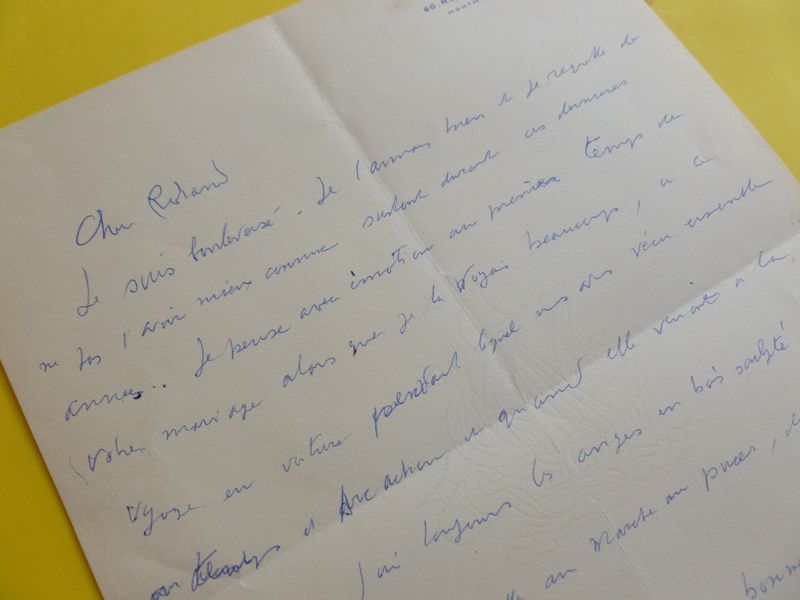 60, R
Cher Richard
Je suis bouleversé. Je l'aimais bien et je regrette de
ne pas l'avoir mieux connue surtout durant ces dernières
années.. Je pense avec émotion au premier temps de
votre mariage alors que je la voyais beaucoup, à ce
voyage en voiture pendant lequel nous avons vécu ensemble
et Arcachon et quand elle venait à la
J'ai toujours les anges en bois sculpté
au Marché au puces, d
bonne